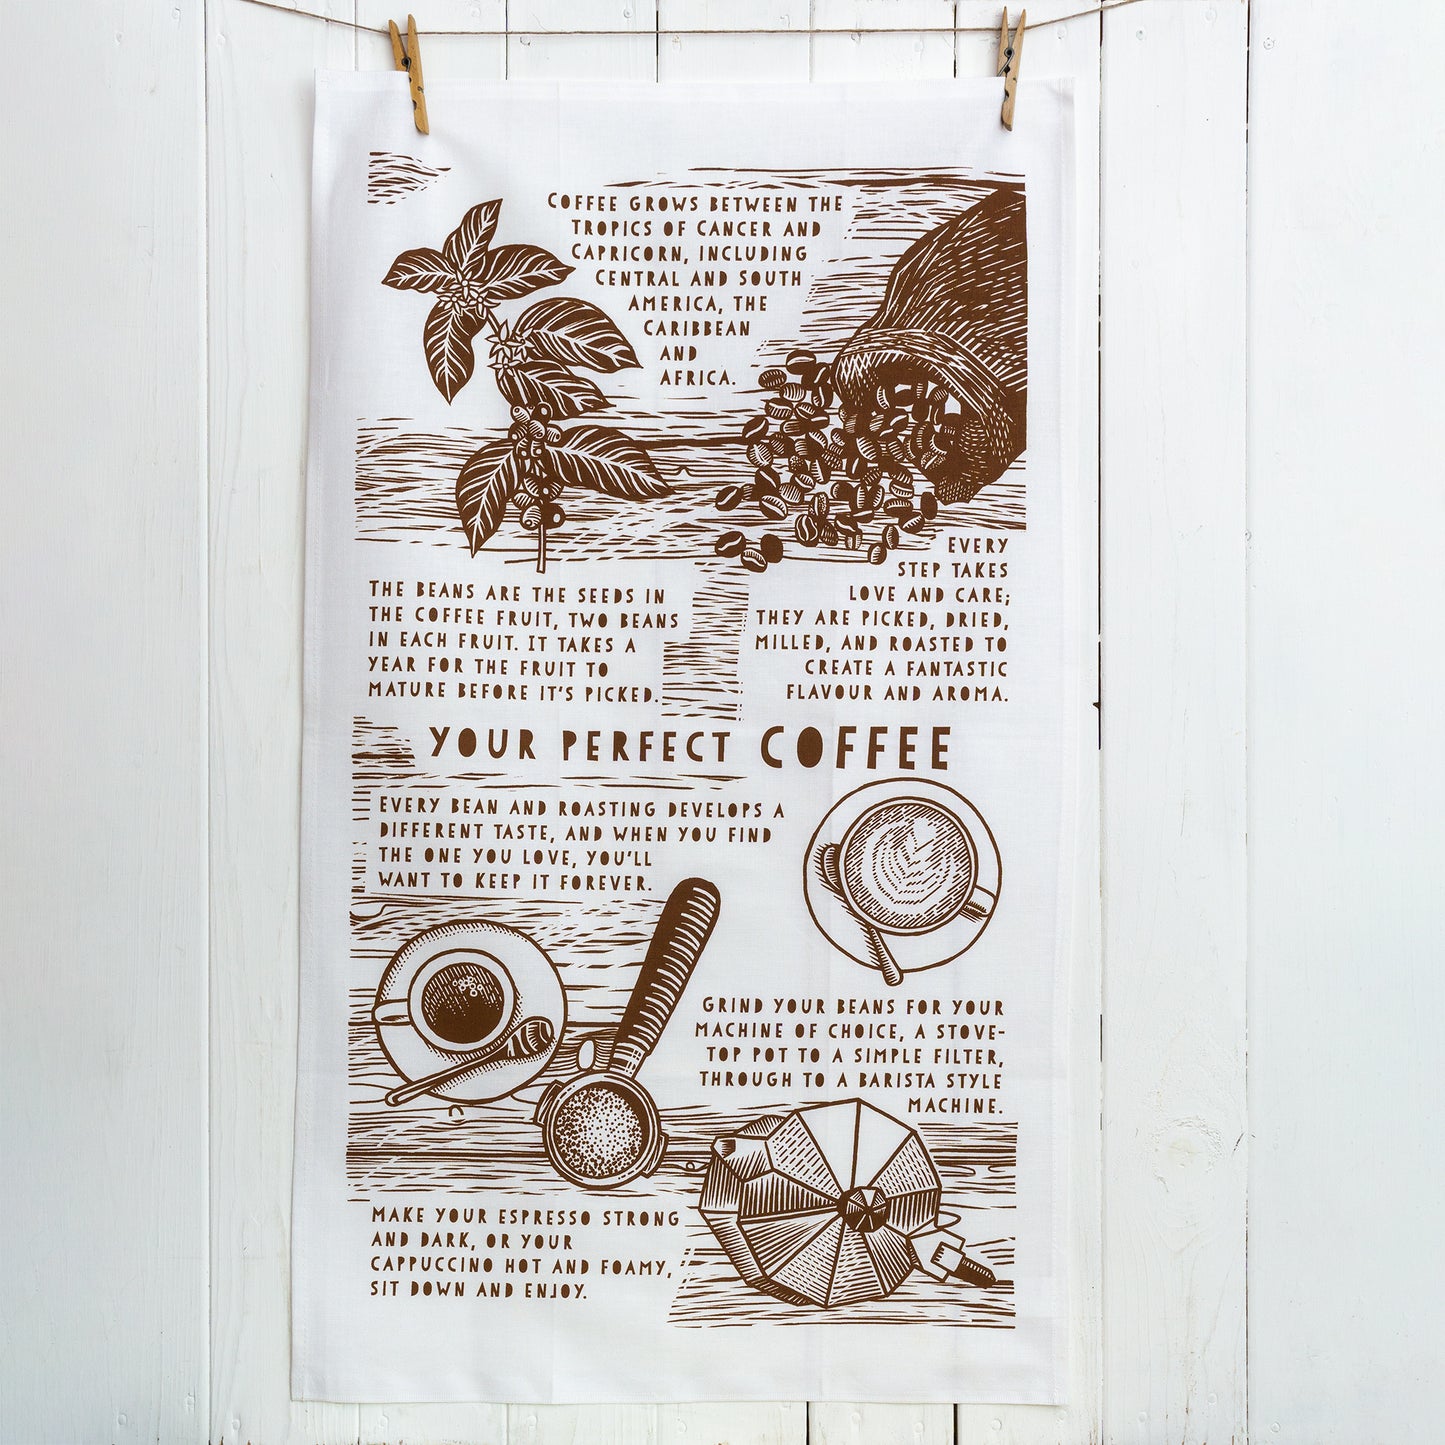 COFFEE GROWS BETWEEN THE
TROPICS OF CANCER AND
CAPRICORN, INCLUDING
CENTRAL AND SOUTH
AMERICA, THE
CARIBBEAN
AND
AFRICA.
THE BEANS ARE THE SEEDS IN
THE COFFEE FRUIT, TWO BEANS
IN EACH FRUIT. IT TAKES A
YEAR FOR THE FRUIT TO
MATURE BEFORE IT'S PICKED.
EVERY
STEP TAKES
LOVE AND CARE;
THEY ARE PICKED, DRIED,
MILLED, AND ROASTED TO
CREATE A FANTASTIC
FLAVOUR AND AROMA.
YOUR PERFECT COFFEE
EVERY BEAN AND ROASTING DEVELOPS A
DIFFERENT TASTE, AND WHEN YOU FIND
THE ONE YOU LOVE, YOU'LL
WANT TO KEEP IT FOREVER.
GRIND YOUR BEANS FOR YOUR
MACHINE OF CHOICE, A STOVE-
TOP POT TO A SIMPLE FILTER,
THROUGH TO A BARISTA STYLE
MACHINE.
MAKE YOUR ESPRESSO STRONG
AND DARK, OR YOUR
CAPPUCCINO HOT AND FOAMY,
SIT DOWN AND ENJOY.